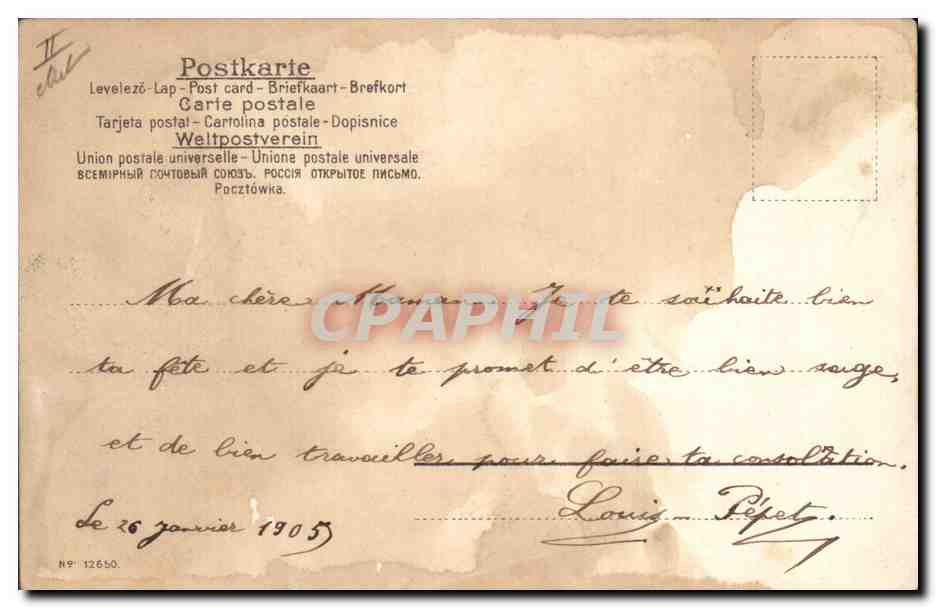 II
Postkarte
Levelező-Lap - Post card - Briefkaart - Brefkort
Carte postale
Tarjeta postal - Cartolina postale - Dopisnice
Weltpostverein
Union postale universelle - Unione postale universale
ВСЕМІРНЫЙ ПОЧТОВЫЙ СОЮЗЪ. РОССІЯ ОТКРЫТОЕ ПИСЬМО.
Pocztówka.
Ma chère Maman Je te souhaite bien
CPAPHIL
ta fête et je te promet d'être bien sage,
et de bien travailler pour faire ta consolation.
Louis Pépet.
Le 26 Janvier 1905
No 12650.